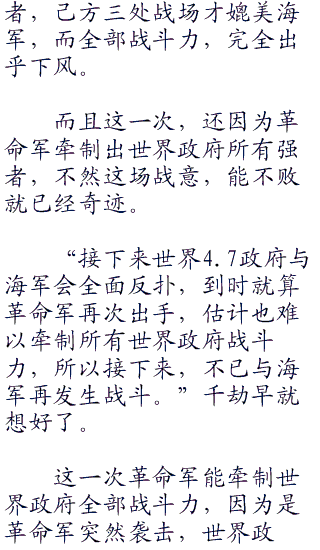 者，己方三处战场才媲美海
军，而全部战斗力，完全出
乎下风。
而且这一次，还因为革
命军牵制出世界政府所有强
者，不然这场战意，能不败
就已经奇迹。
“接下来世界4.7政府与
海军会全面反扑，到时就算
革命军再次出手，估计也难
以牵制所有世界政府战斗
力，所以接下来，不已与海
军再发生战斗。”千劫早就
想好了。
这一次革命军能牵制世
界政府全部战斗力，因为是
革命军突然袭击，世界政